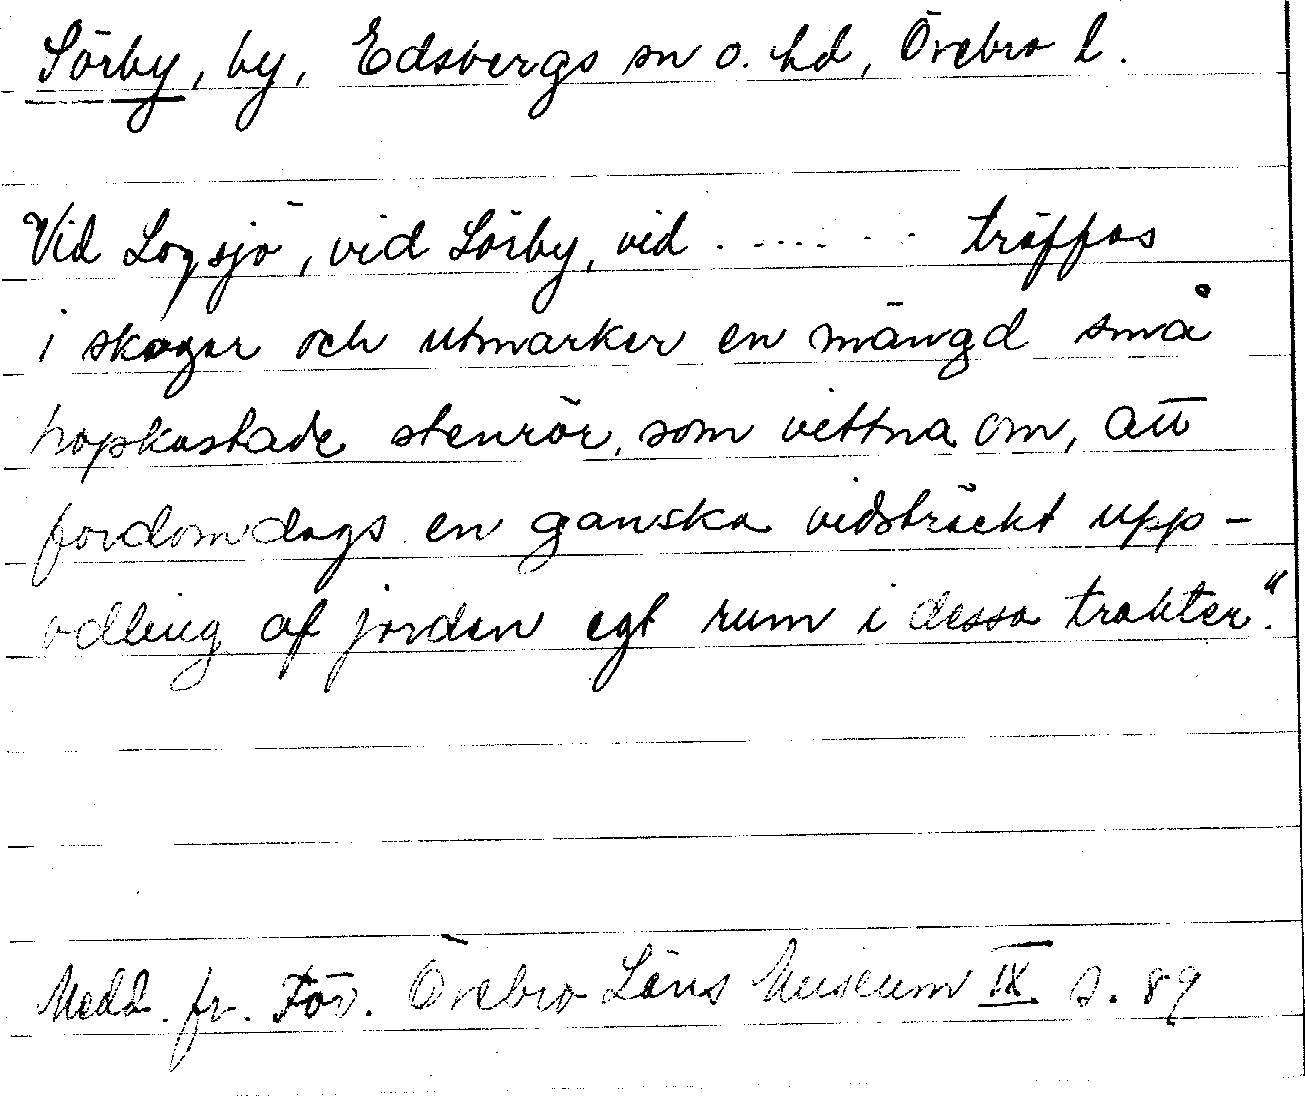 Sörby, by, Edsbergs sn o. hd, Örebro l.
Vid Logsjö, vid Sörby, vid . . . . . . . träffas
i skogar och utmarker en mängd små
hopkastade stenrör, som vittna om, att
fordomdags en ganska vidsträckt upp-
odling af jorden egt rum i dessa trakter."
Medd. fr. För. Örebro Läns Museum IX s. 89